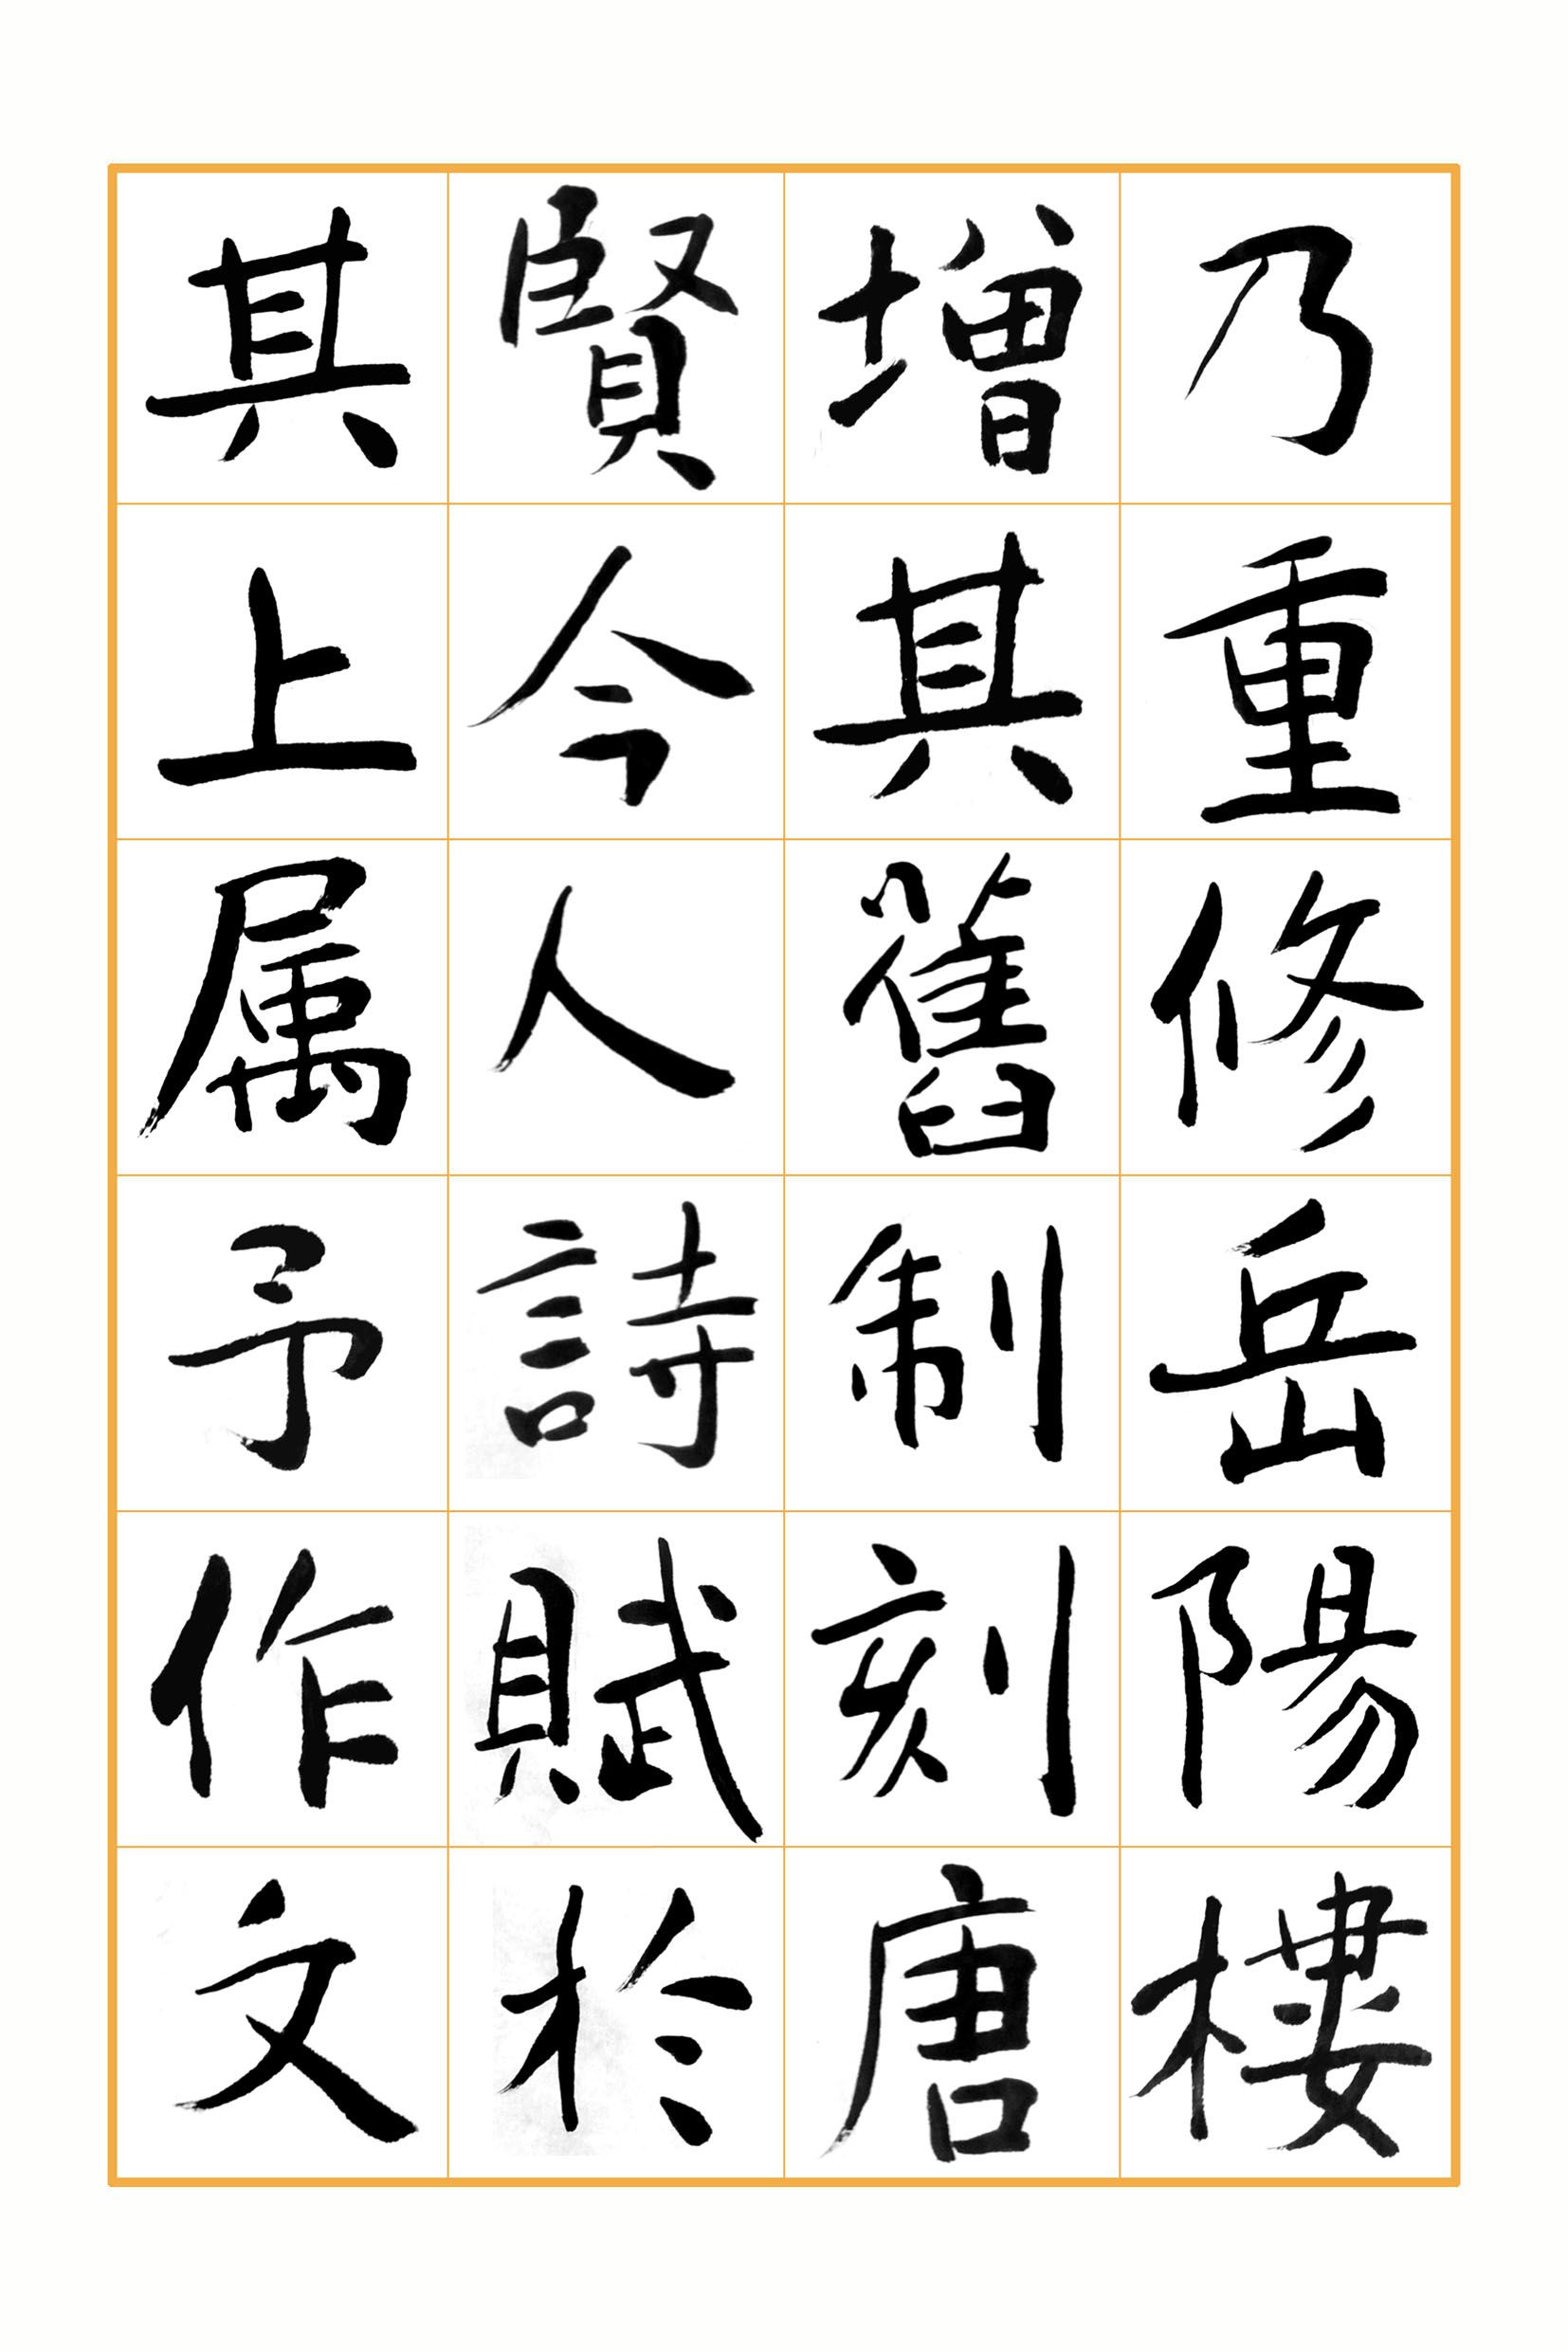 乃重修岳陽樓
增其舊制刻唐
賢今人詩賦於
其上属予作文